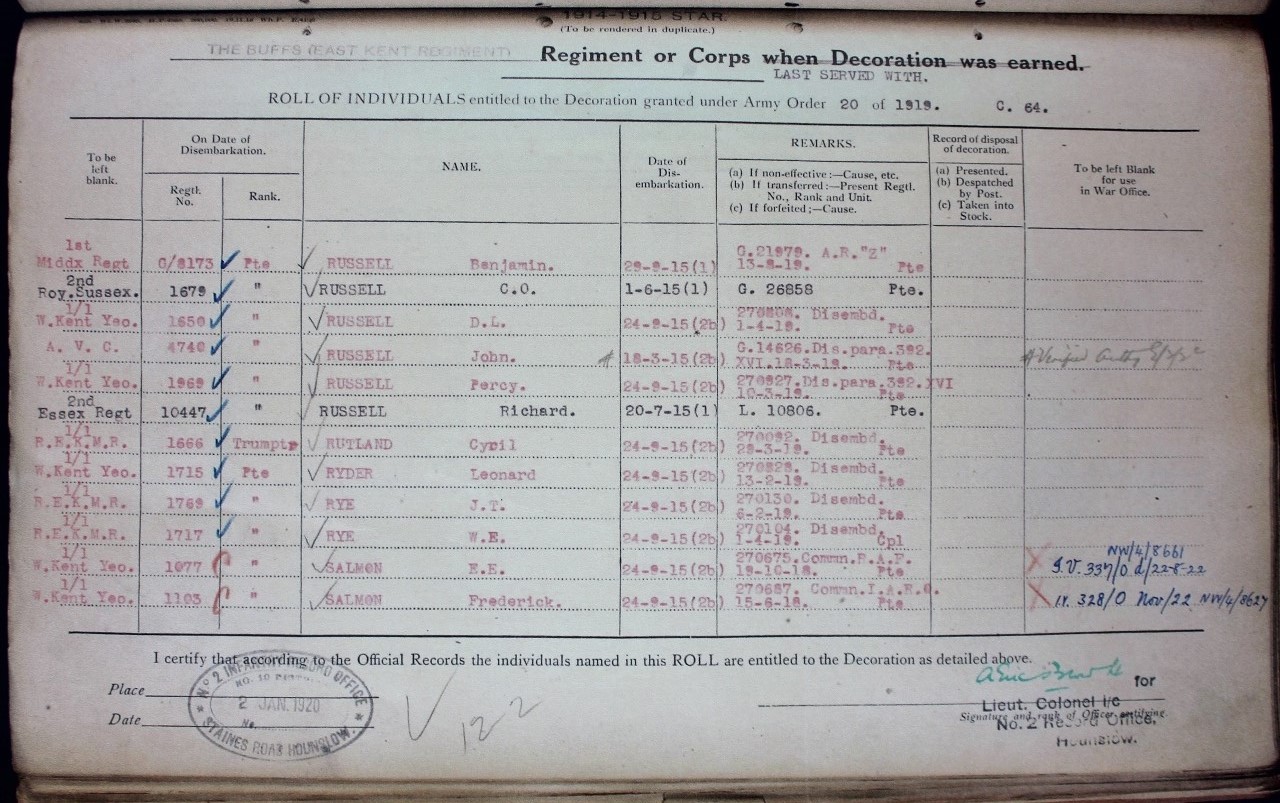 1914-1915 STAR.
(To be rendered in duplicate.)
THE BUFFS (EAST KENT REGIMENT) Regiment or Corps when Decoration was earned.
LAST SERVED WITH.
ROLL OF INDIVIDUALS entitled to the Decoration granted under Army Order 20 of 1919. C. 64.
To be left blank. On Date of Disembarkation. Regtl. No. Rank. NAME. Date of Dis-embarkation. REMARKS. (a) If non-effective :—Cause, etc. (b) If transferred :—Present Regtl. No., Rank and Unit. (c) If forfeited ;—Cause. Record of disposal of decoration. (a) Presented. (b) Despatched by Post. (c) Taken into Stock. To be left Blank for use in War Office.
1st
Middx Regt G/8173 Pte RUSSELL Benjamin. 29-9-15(1) G.21979. A.R."Z"
13-8-19. Pte
2nd
Roy.Sussex. 1679 " RUSSELL C.O. 1-6-15(1) G. 26858 Pte.
1/1
W.Kent Yeo. 1650 " RUSSELL D.L. 24-9-15(2b) Disembd.
1-4-19. Pte
A. V. C. 4740 " RUSSELL John. 18-3-15(2b) G.14626.Dis.para.392.
XVI.18-3-19. Pte
1/1
W.Kent Yeo. 1969 " RUSSELL Percy. 24-9-15(2b) 270927.Dis.para.392.XVI
10-3-19. Pte
2nd
Essex Regt 10447 " RUSSELL Richard. 20-7-15(1) L. 10806. Pte.
1/1
R.E.K.M.R. 1666 Trumptr RUTLAND Cyril 24-9-15(2b) 270092. Disembd.
29-3-19. Pte
1/1
W.Kent Yeo. 1715 Pte RYDER Leonard 24-9-15(2b) 270828. Disembd.
13-2-19. Pte
1/1
R.E.K.M.R. 1769 " RYE J.T. 24-9-15(2b) 270130. Disembd.
6-2-19. Pte
1/1
R.E.K.M.R. 1717 " RYE W.E. 24-9-15(2b) 270104. Disembd.
1-4-19. Cpl
1/1 NW/4/8661
W.Kent Yeo. 1077 " SALMON E.E. 24-9-15(2b) 270675.Commn.R.A.F.
19-10-18. Pte I.V. 337/0 d/22-8-22
1/1
W.Kent Yeo. 1103 " SALMON Frederick. 24-9-15(2b) 270687. Commn.I.A.R.O.
15-6-18. " Pte. I.V. 328/0 Nov/22 NW/4/8627
I certify that according to the Official Records the individuals named in this ROLL are entitled to the Decoration as detailed above.
Place
Date
No 2 INFANTRY RECORD OFFICE
2 JAN. 1920
No.
STAINES ROAD HOUNSLOW.
122
for
Lieut. Colonel i/c
Signature and rank of Officer certifying.
No. 2 Record Office,
Hounslow.